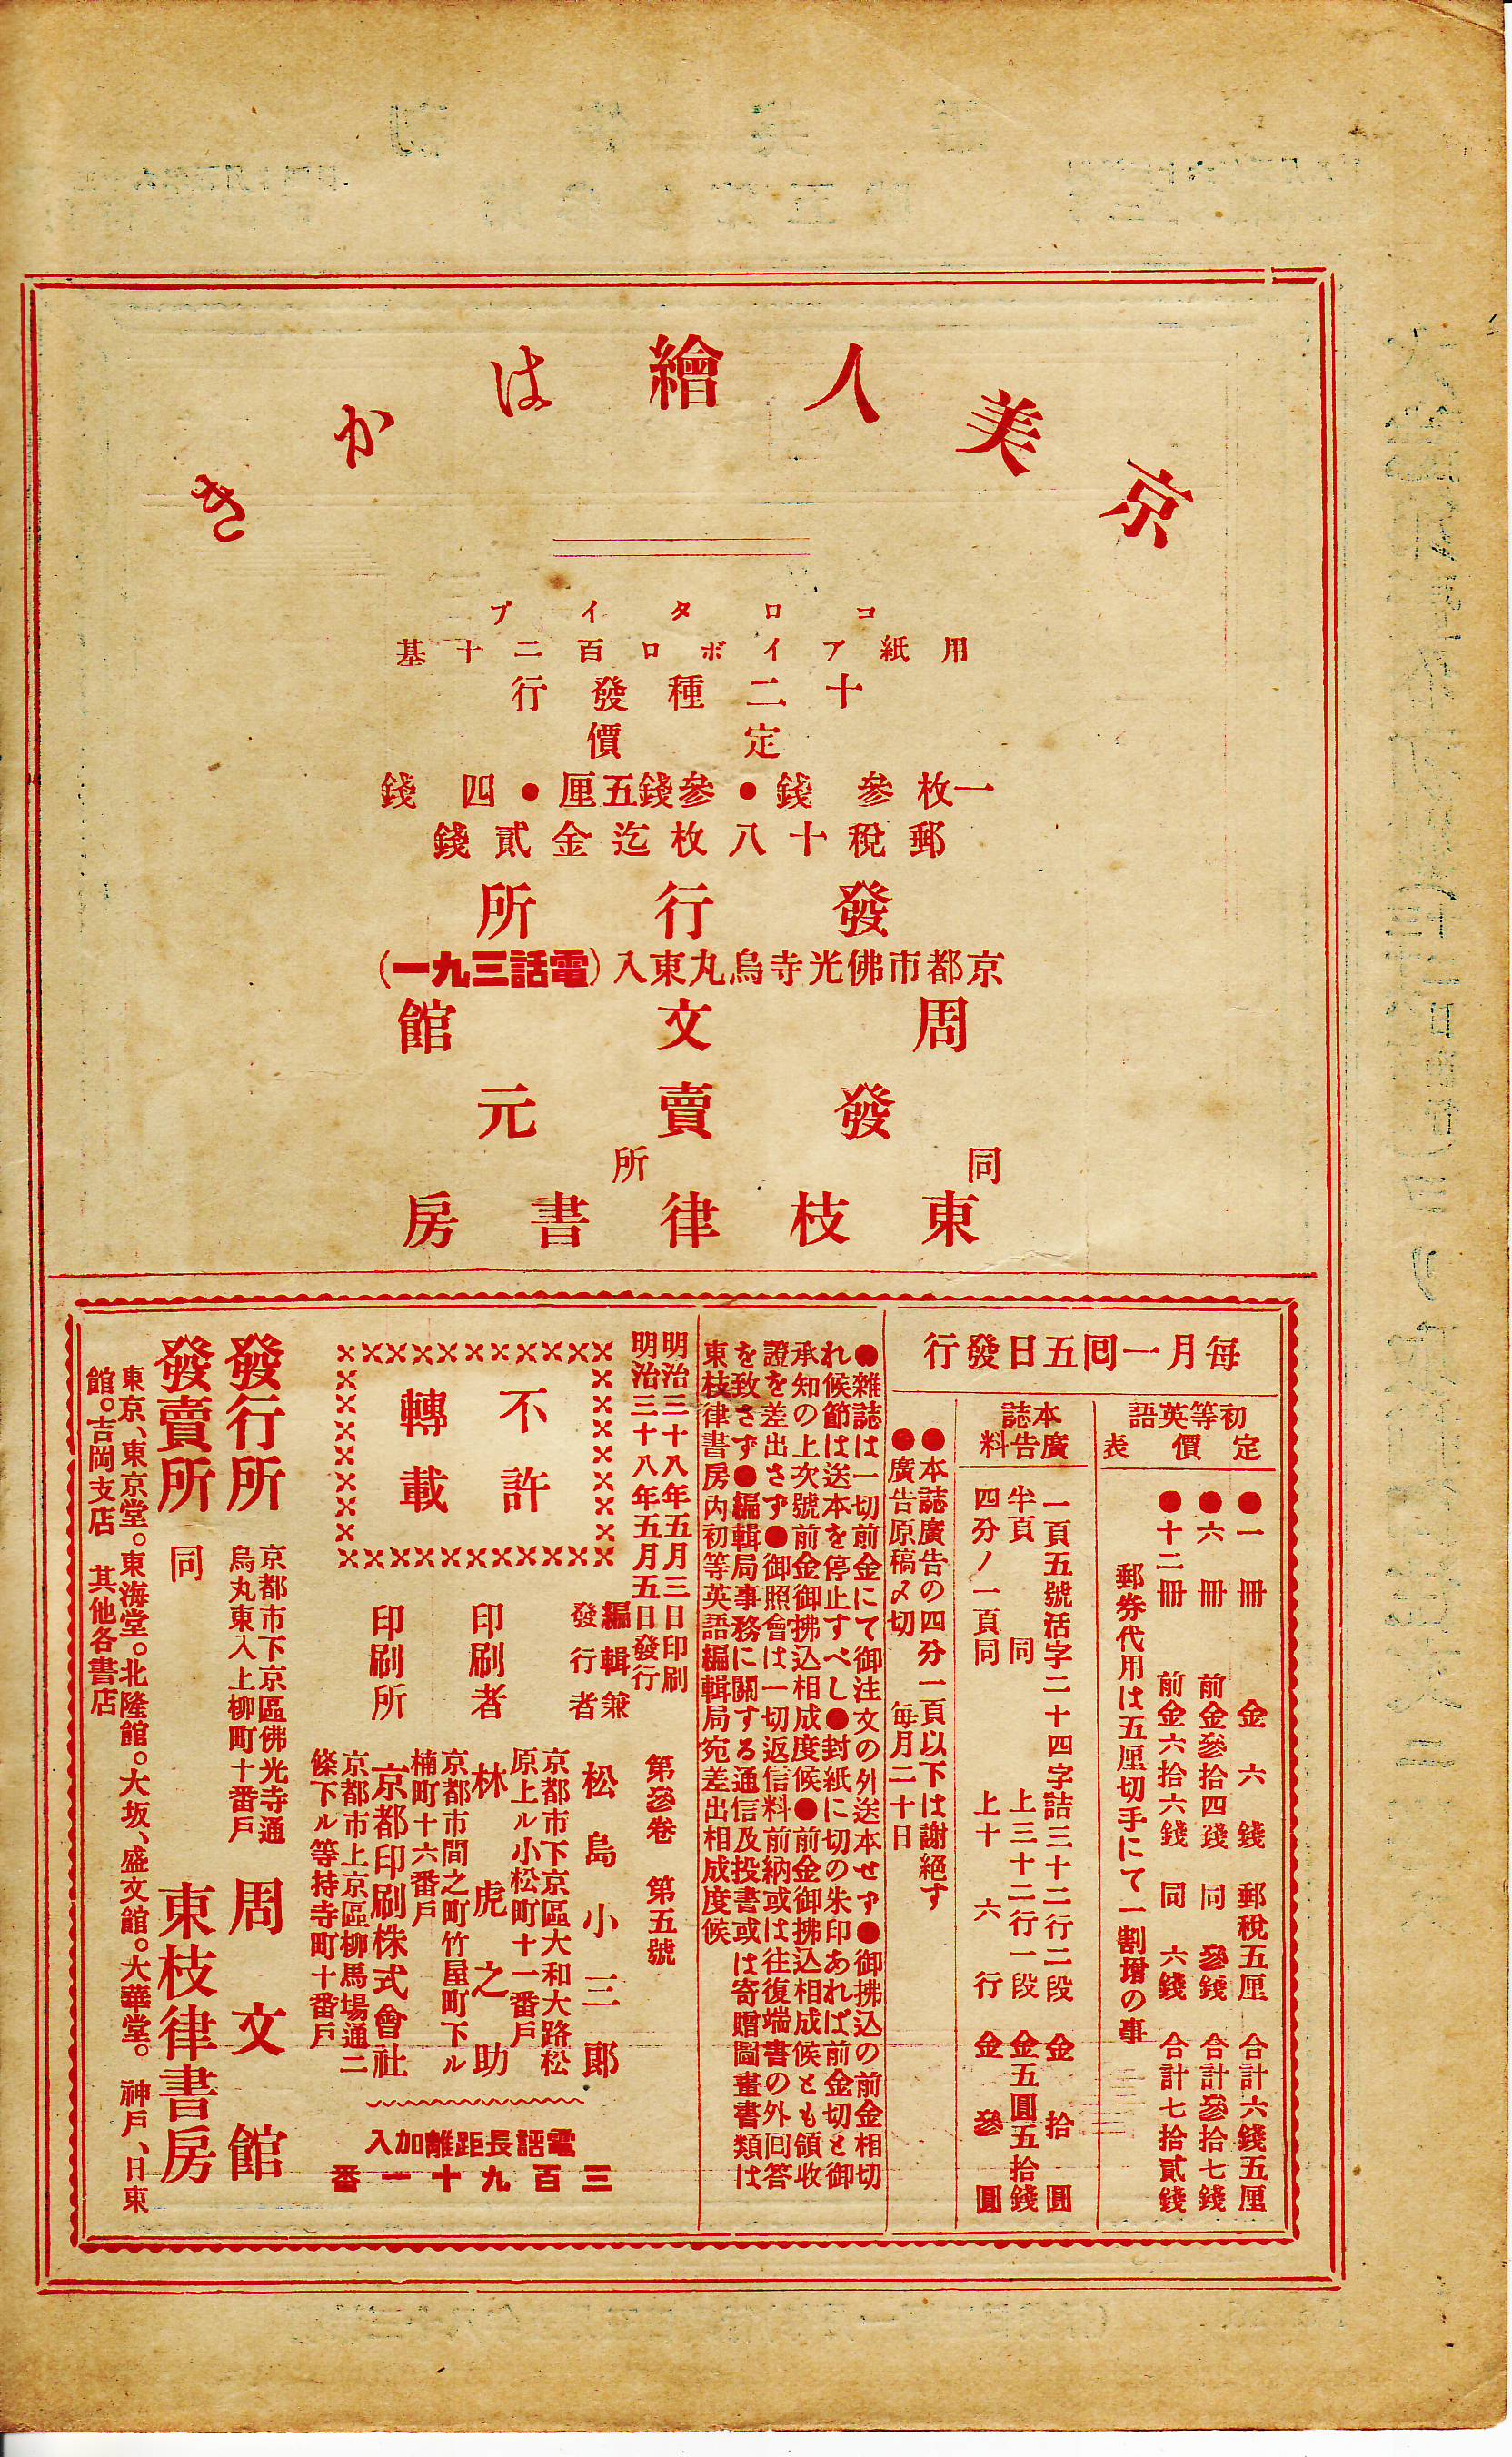 京美人繪はかき
コロタイプ
用紙アイボロ百二十基
十二種發行
定價
一枚參錢●參錢五厘●四錢
郵稅十八枚迄金貳錢
發行所
京都市佛光寺烏丸東入(電話三九一)
周文館
發賣元
同所
東枝律書房
每月一回五日發行
初等英語
定價表
●一冊 金六錢 郵稅五厘 合計六錢五厘
●六冊 前金參拾四錢 同參錢 合計參拾七錢
●十二冊 前金六拾六錢 同六錢 合計七拾貳錢
郵券代用は五厘切手にて一割增の事
本誌
廣告料
一頁五號活字二十四字詰三十二行二段 金拾圓
半頁 同 上三十二行一段 金五圓五拾錢
四分ノ一頁同 上十六行 金參圓
●本誌廣告の四分一頁以下は謝絕す
●廣告原稿〆切 每月二十日
●雜誌は一切前金にて御注文の外送本せず●御拂込の前金相切
れ候節は送本を停止すべし●封紙に切の朱印あれば前金切と御
承知の上次號前金御拂込相成度候●前金御拂込相成候とも領收
證を差出さず●御照會は一切返信料前納或は往復端書の外回答
を致さず●編輯局事務に關する通信及投書或は寄贈圖畫書類は
東枝律書房內初等英語編輯局宛差出相成度候
明治三十八年五月三日印刷
明治三十八年五月五日發行
第參卷 第五號
不許
轉載
編輯兼
發行者
松島小三郎
京都市下京區大和大路松
原上ル小松町十一番戶
印刷者
林虎之助
京都市間之町竹屋町下ル
楠町十六番戶
印刷所
京都印刷株式會社
京都市上京區柳馬場通二
條下ル等持寺町十番戶
電話長距離加入
三百九十一番
發行所
京都市下京區佛光寺通
烏丸東入上柳町十番戶
周文館
發賣所 同 東枝律書房
東京、東京堂。東海堂。北隆館。大坂、盛文館。大華堂。 神戶、日東
館。吉岡支店 其他各書店